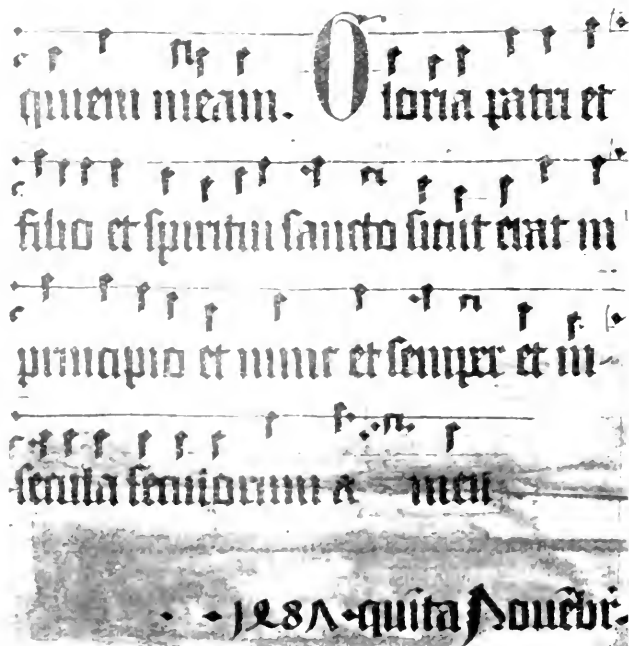 quiem meam. Gloria patri et
filio et spiritui sancto sicut erat in
principio et nunc et semper et in
secula seculorum a men
1487 quīta Nouēbr̄